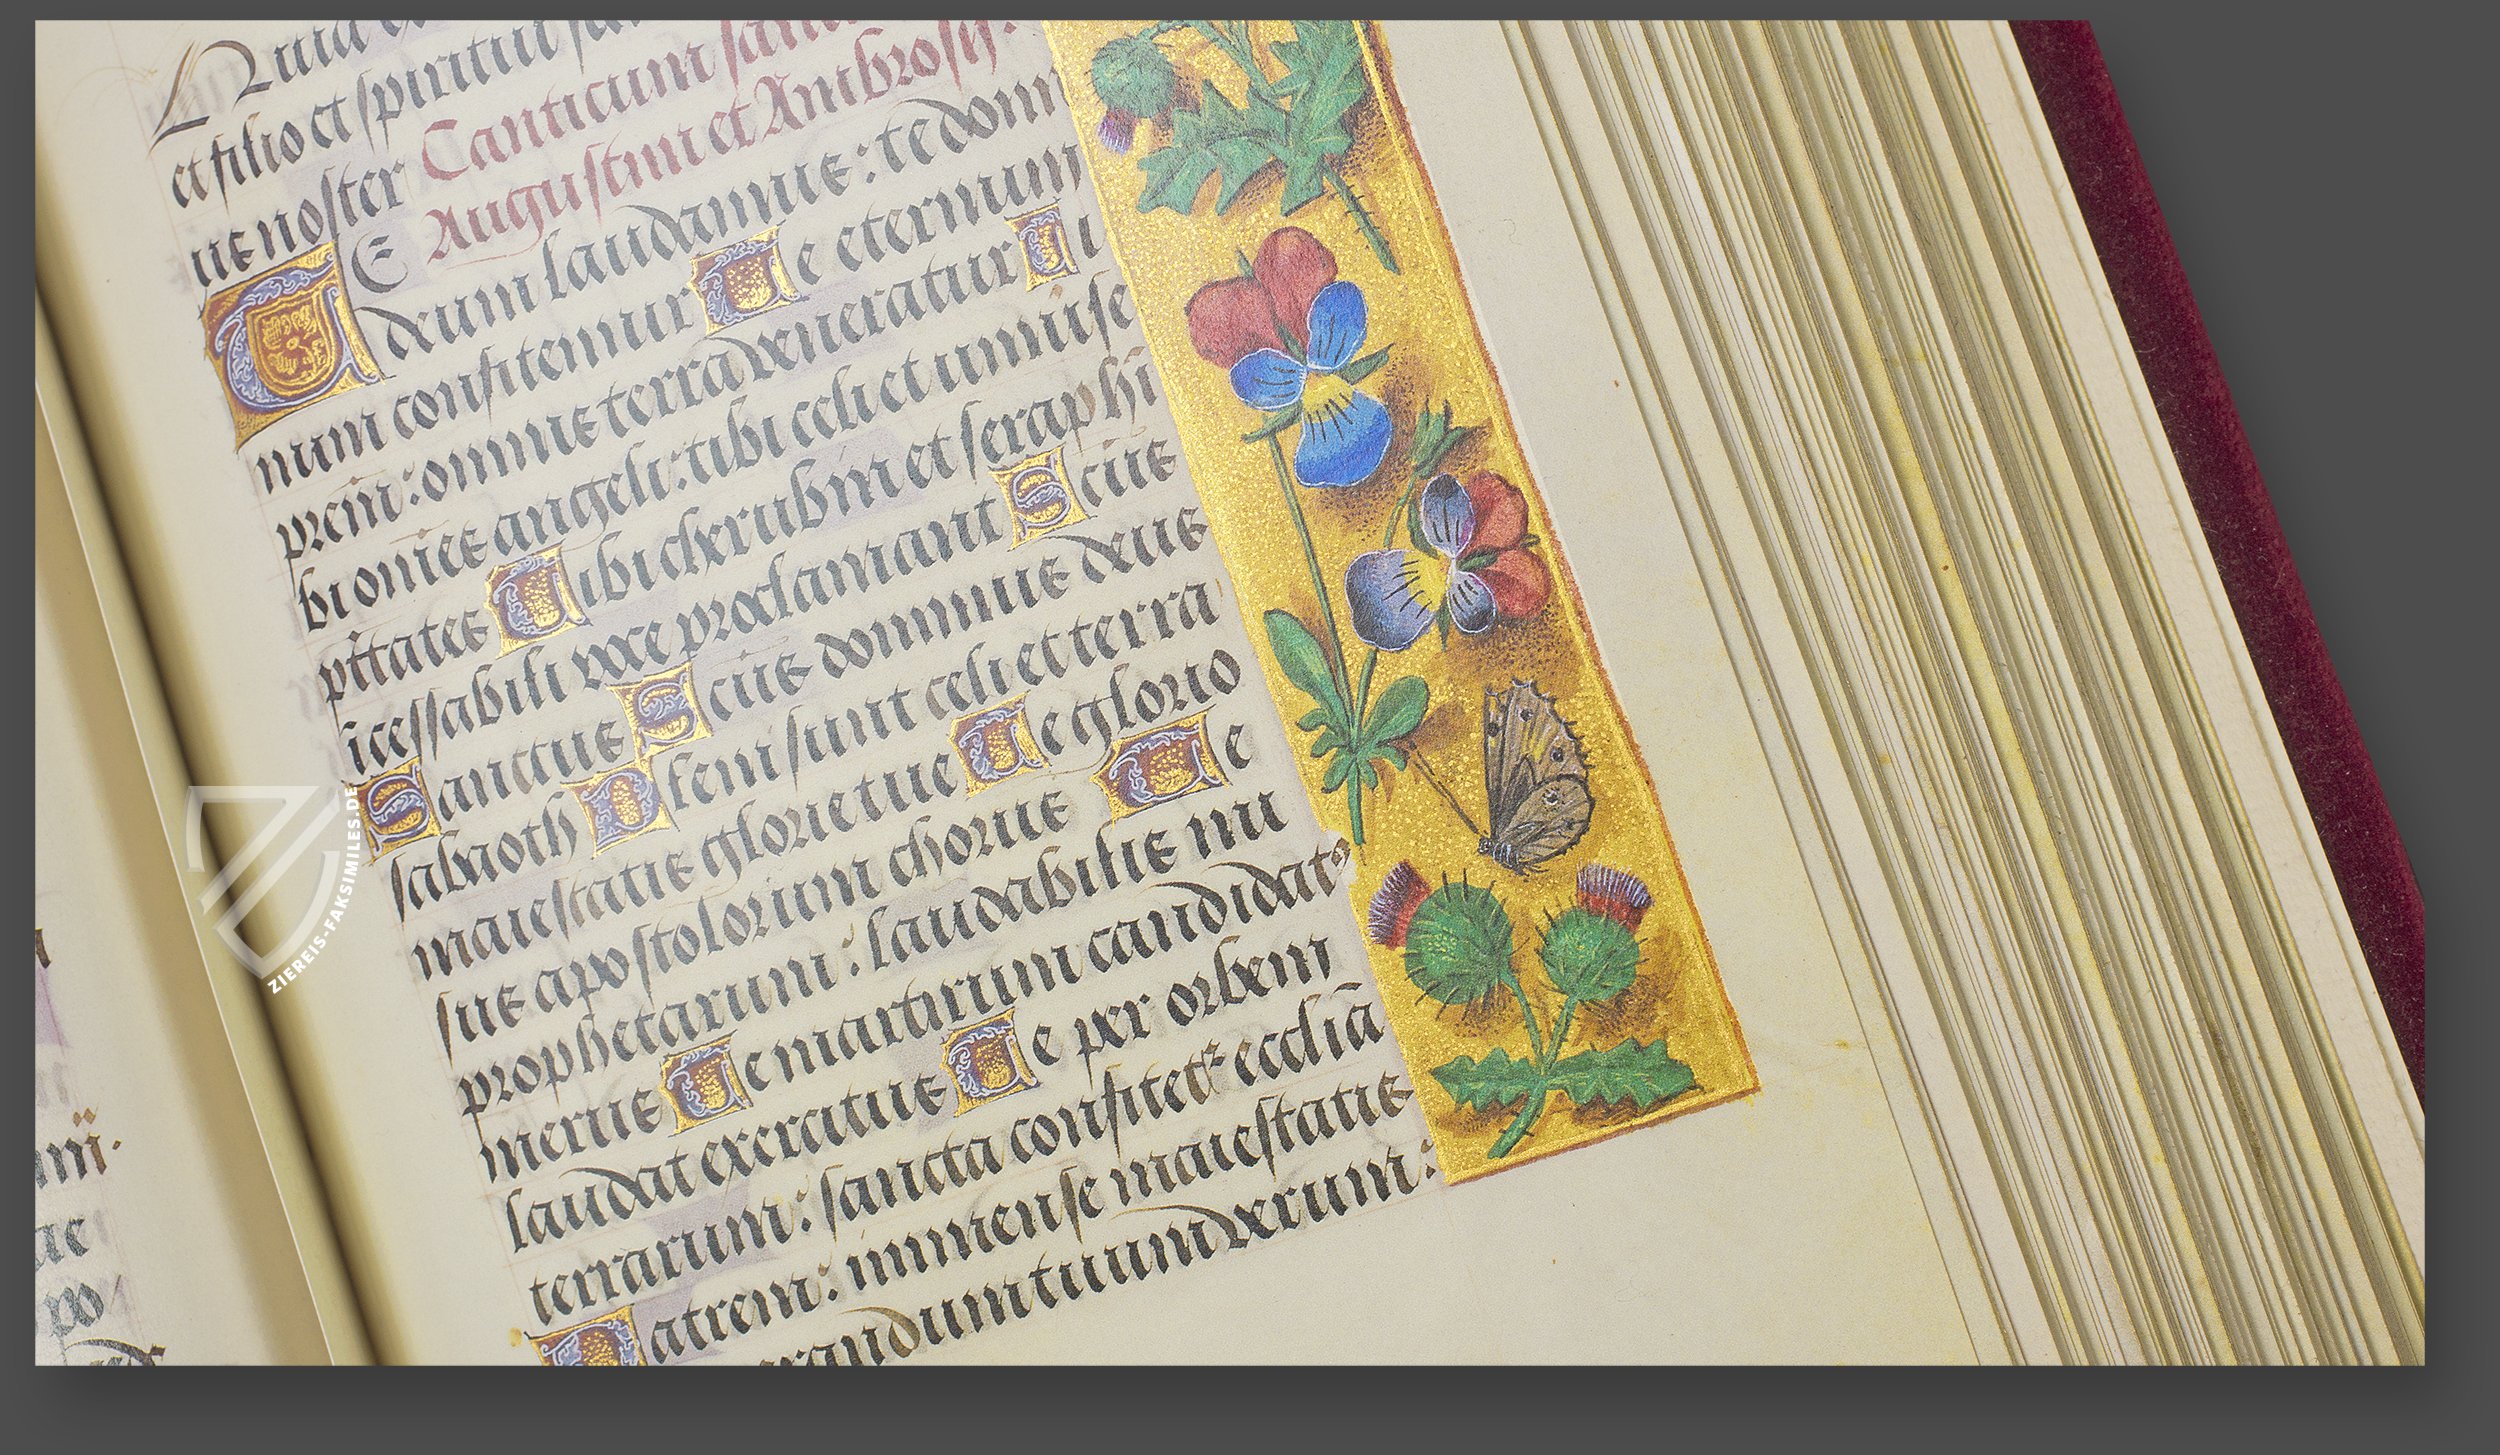 et filio et spiritui
ue noster Canticum
Augustini et Ambrosii.
TE
deum laudamus: te domi
num confitemur Te eternum
prem: omnis terra veneratur Ti
bi omnes angeli: tibi celi et univise
ptates Tibi cherubin et seraphi
icessabili voce proclamant Sctus
Sanctus Sctus dominus deus
sabaoth Pleni sunt celi et terra
maiestatis glorie tue Te glorio
sus apostolorum chorus Te
prophetarum: laudabilis nu
merus Te martirum candidat9
laudat exercitus Te per orbem
terrarum: sancta confitet ecclia
Patrem: immense maiestatis
erandum tuum verum:
po
ZIEREIS-FAKSIMILES.DE